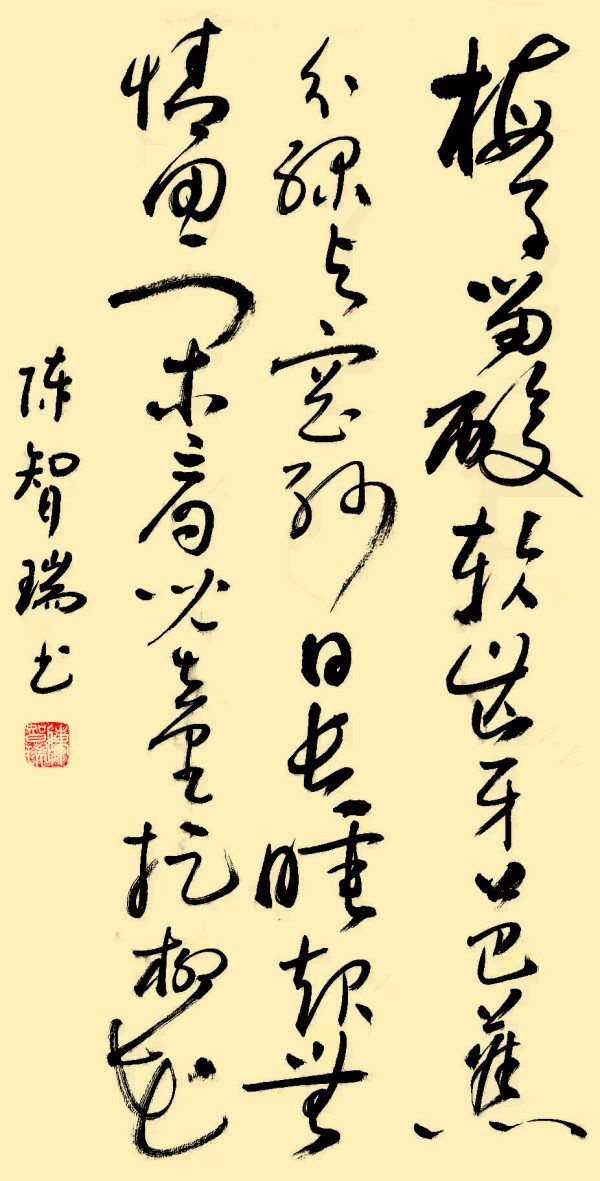 梅子留酸软齿牙芭蕉
分绿与窗纱日长睡起无
情思闲看儿童捉柳花
陈智瑞书